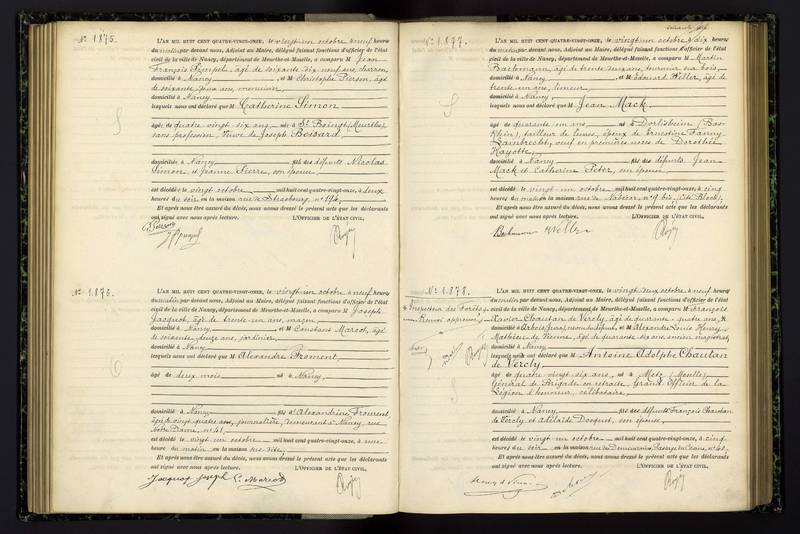 N° 1875.
L'AN MIL HUIT CENT QUATRE-VINGT-ONZE, le vingt un octobre à neuf heures
du matin par devant nous, Adjoint au Maire, délégué faisant fonctions d'officier de l'état
civil de la ville de Nancy, département de Meurthe-et-Moselle, a comparu M Jean
François âgé de soixante dix neuf ans,
domicilié à Nancy et M Christophe Pierson, âgé
de soixante ans,
domicilié à Nancy
lesquels nous ont déclaré que M Catherine Simon
âgée de quatre vingt dix ans, née à St Boingt (Meurthe),
sans profession, veuve de Joseph Boisard
domiciliée à Nancy fille des défunts Nicolas
Simon et Jeanne Pierre, son épouse
est décédée le vingt octobre mil huit cent quatre-vingt-onze, à deux
heures du soir en la maison rue de Strasbourg, n° 194,
Et après nous être assuré du décès, nous avons dressé le présent acte que les déclarants
ont signé avec nous après lecture. L'OFFICIER DE L'ÉTAT CIVIL,
N° 1876.
L'AN MIL HUIT CENT QUATRE-VINGT-ONZE, le vingt un octobre à neuf heures
du matin par devant nous, Adjoint au Maire, délégué faisant fonctions d'officier de l'état
civil de la ville de Nancy, département de Meurthe-et-Moselle, a comparu M Joseph
Jacquot, âgé de trente un ans, maçon
domicilié à Nancy et M Constant Marcot, âgé
de soixante douze ans, jardinier,
domicilié à Nancy
lesquels nous ont déclaré que M Alexandre Froment,
âgé de deux mois né à Nancy,
domicilié à Nancy fils d'Alexandrine Froment
âgée de vingt quatre ans, journalière, demeurant à Nancy, rue
Notre Dame, n° 41,
est décédé le vingt un octobre mil huit cent quatre-vingt-onze, à une
heure du matin en la maison
Et après nous être assuré du décès, nous avons dressé le présent acte que les déclarants
ont signé avec nous après lecture. L'OFFICIER DE L'ÉTAT CIVIL,
Jacquot Joseph C. Marcot
N° 1877.
L'AN MIL HUIT CENT QUATRE-VINGT-ONZE, le vingt un octobre à dix heures
du matin par devant nous, Adjoint au Maire, délégué faisant fonctions d'officier de l'état
civil de la ville de Nancy, département de Meurthe-et-Moselle, a comparu M Martin
âgé de trente deux ans, tourneur sur bois
domicilié à Nancy et M Edouard Weller, âgé de
trente un ans,
domicilié à Nancy
lesquels nous ont déclaré que M Jean Mack.
âgé de quarante un ans né à Dorlisheim (Bas-
Rhin), époux de Ernestine Fanny
Lambrecht, veuf en premières noces de Dorothée
domicilié à Nancy fils des défunts Jean
Mack et Catherine Peter, son épouse
est décédé le vingt un octobre mil huit cent quatre-vingt-onze, à cinq
heures du matin en la maison rue de Nabécor, n° 9 bis, (cité Bloch),
Et après nous être assuré du décès, nous avons dressé le présent acte que les déclarants
ont signé avec nous après lecture. L'OFFICIER DE L'ÉTAT CIVIL,
N° 1878.
Inspecteur des Forêts
Renvoi approuvé
L'AN MIL HUIT CENT QUATRE-VINGT-ONZE, le vingt deux octobre à neuf heures
du matin par devant nous, Adjoint au Maire, délégué faisant fonctions d'officier de l'état
civil de la ville de Nancy, département de Meurthe-et-Moselle, a comparu M François
Xavier Chautan de Vercly, âgé de quarante quatre ans,
domicilié à Arbois (Jura), neveu du défunt, et M Alexandre Louis Henry
Mathieu de Vienne, âgé de quarante six ans, ancien magistrat
domicilié à Nancy
lesquels nous ont déclaré que M Antoine Adolphe Chautan
de Vercly
âgé de quatre vingt six ans, né à Metz (Moselle),
Général de Brigade en retraite, Grand officier de la
Légion d'honneur, célibataire,
domicilié à Nancy fils des défunts François Chautan
de Vercly et Adélaïde Dosquet, son épouse,
est décédé le vingt un octobre mil huit cent quatre-vingt-onze, à cinq
heures du soir en la maison
Et après nous être assuré du décès, nous avons dressé le présent acte que les déclarants
ont signé avec nous après lecture. L'OFFICIER DE L'ÉTAT CIVIL,